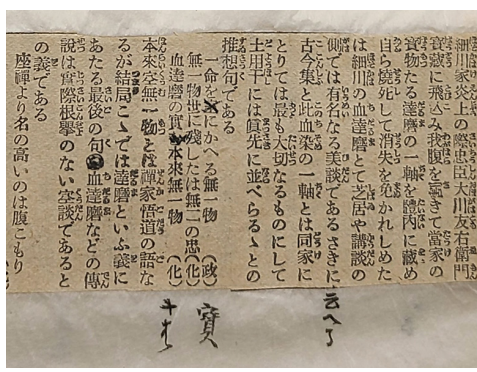 細川家炎上の際忠臣大川友右衛門
寶藏に飛込み我腹を劈きて當家の
寶物たる達磨の一軸を體内に藏め
自ら燒死して消失を免かれしめた
は細川の血達磨とて芝居や講談の
側では有名なる美談であるさきに
古今集と此血染の一軸とは同家に
とりては最も大切なるものにして
土用干には眞先に並べらるゝとの
云へり
推想句である
一命を にかへる無一物 (政)
無一物世に殘したは無二の忠 (化)
寶
血達磨の實本來無一物 (化)
本來空無一物とは禪家悟道の語な
るが結局こゝでは達磨といふ義に
あたる最後の句 血達磨などの傳
說は實際根據のない空談であると
の義である
座禪より名の高いのは腹こもり